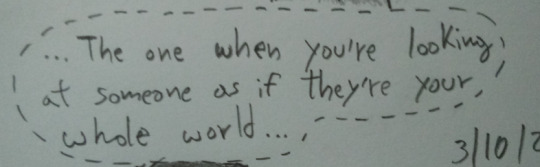 ... The one when you're looking
at someone as if they're your
whole world...
3/10/2